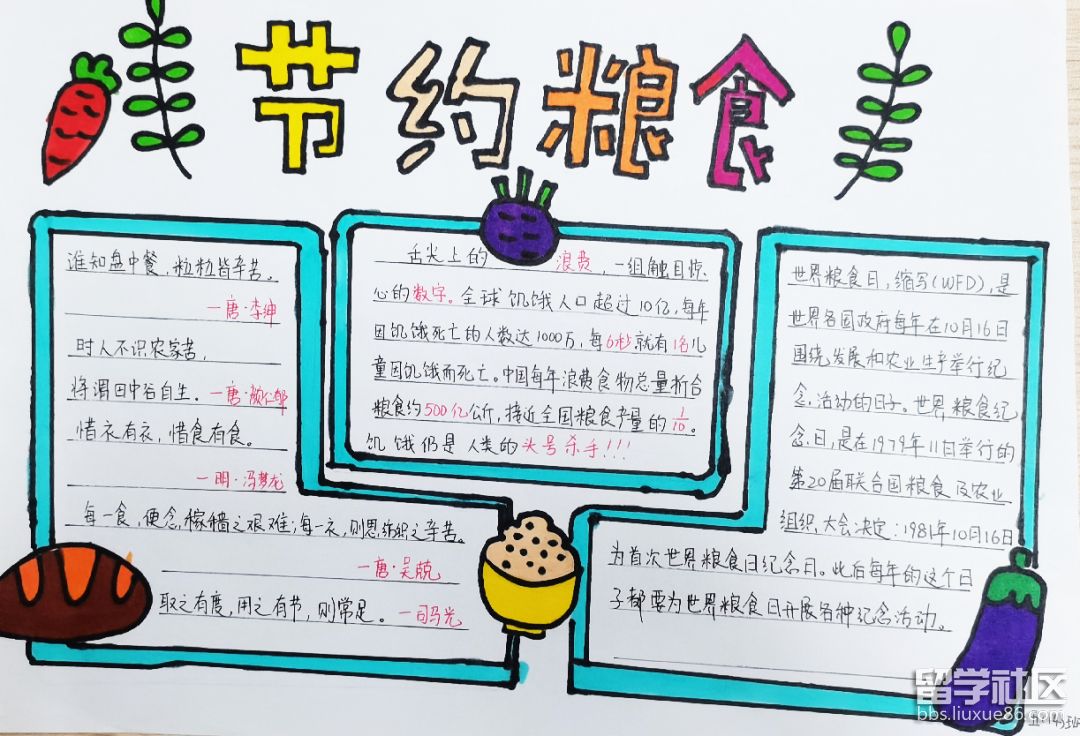 节约粮食
谁知盘中餐,粒粒皆辛苦。
—唐·李绅
时人不识农家苦,
将谓田中谷自生。—唐·颜仁郁
惜衣有衣,惜食有食。
—明·冯梦龙
每一食,便念稼穑之艰难;每一衣,则思纺织之辛苦。
—唐·吴兢
取之有度,用之有节,则常足。—司马光
舌尖上的浪费,一组触目惊
心的数字。全球饥饿人口超过10亿,每年
因饥饿死亡的人数达1000万,每6秒就有1名儿
童因饥饿而死亡。中国每年浪费食物总量折合
粮食约500亿公斤,接近全国粮食产量的1/10。
饥饿仍是人类的头号杀手!!!
世界粮食日,缩写(WFD),是
世界各国政府每年在10月16日
围绕发展和农业生产举行纪
念活动的日子。世界粮食纪
念日,是在1979年11日举行的
第20届联合国粮食及农业
组织,大会决定:1981年10月16日
为首次世界粮食日纪念日。此后每年的这个日
子都要为世界粮食日开展各种纪念活动。
留学社区
bbs.liuxue86.com